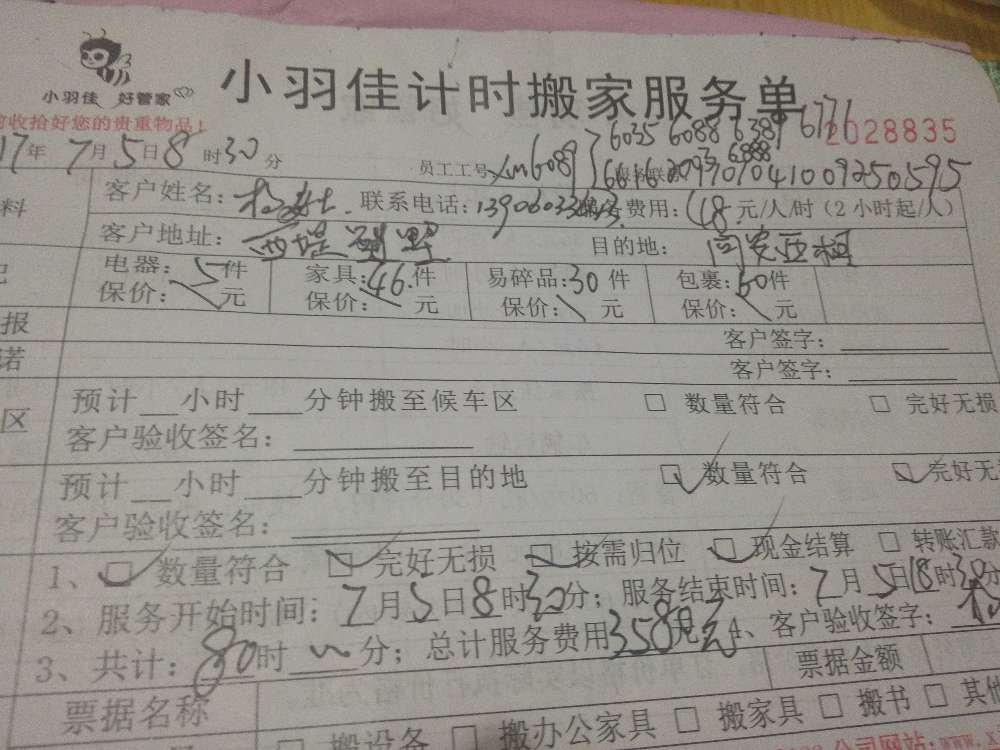 小羽佳 好管家
小羽佳计时搬家服务单
前收拾好您的贵重物品！
2028835
17年7月5日8时30分
员工工号 6089 6035 6088 6389 6776
客户姓名： 联系电话： 费用：48元/人/时（2小时起/人）
客户地址：西堤别墅 目的地：
料
电器：5件 家具：46件 易碎品：30件 包裹：50件
保价：元 保价：元 保价：元 保价：元
报 客户签字：
诺 客户签字：
预计__小时___分钟搬至候车区 □ 数量符合 □ 完好无损
区 客户验收签名：
预计__小时___分钟搬至目的地 数量符合 完好无
客户验收签名：
1、数量符合 完好无损 按需归位 现金结算 □ 转账汇款
2、服务开始时间：7月5日8时30分；服务结束时间：7月5日18时30分
3、共计：80时 分；总计服务费用 358 元 4、客户验收签字：
票据名称 票据金额
□ 搬设备 □ 搬办公家具 □ 搬家具 □ 搬书 □ 其他
公司网站：www.x